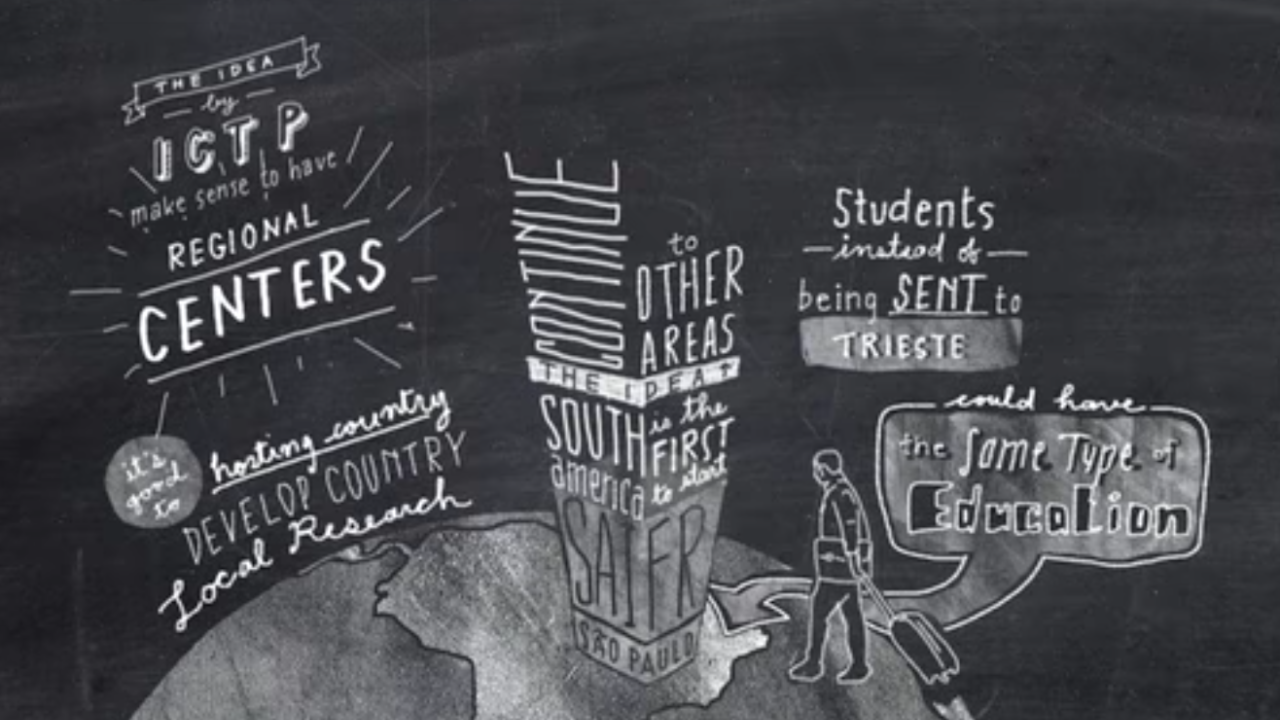 THE IDEA
by
ICTP
make sense to have
REGIONAL
CENTERS
it's
good
to
hosting country
DEVELOP COUNTRY
Local Research
CONTINUE
to
OTHER
AREAS
THE IDEA
SOUTH
america
is the
FIRST
to start
SAIFR
SÃO PAULO
Students
instead of
being SENT to
TRIESTE
could have
the Same Type of
Education